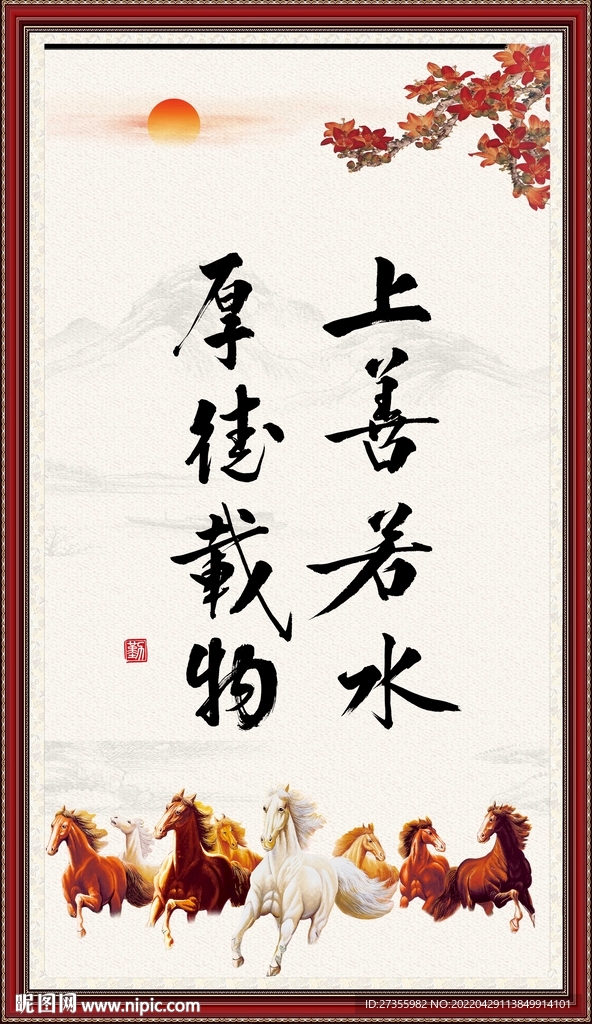 上善若水
厚德載物
勤
昵图网 www.nipic.com
ID:27355982 NO:20220429113849914101